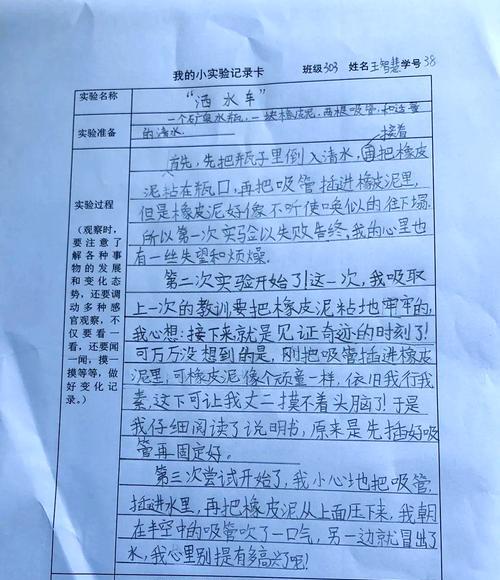 我的小实验记录卡 班级303 姓名王智慧学号38
实验名称 “洒水车”
实验准备 一个矿泉水瓶,一块橡皮泥,两根吸管,和适量
的清水。
接着
首先,先把瓶子里倒入清水,把橡皮
泥粘在瓶口,再把吸管插进橡皮泥里,
但是橡皮泥好像不听使唤似的往下塌,
所以第一次实验以失败告终,我的心里也
有一丝失望和烦燥。
第二次实验开始了!这一次,我吸取
上一次的教训,要把橡皮泥粘地牢牢的,
我心想:接下来,就是见证奇迹的时刻了!
可万万没想到的是,刚把吸管插进橡皮
泥里,可橡皮泥像个顽童一样,依旧我行我
素,这下可让我丈二摸不着头脑了!于是
我仔细阅读了说明书,原来是先插好吸
管再固定好。
第三次尝试开始了,我小心地把吸管
插进水里,再把橡皮泥从上面压下来,我朝
在半空中的吸管吹了一口气,另一边就冒出了
水,我心里别提有多高兴了呢!
实验过程
(观察时,
要注意了
解各种事
物的发展
和变化态
势,还要调
动多种感
官观察,不
仅要看一
看,还要闻
一闻,摸一
摸等等,做
好变化记
录。)